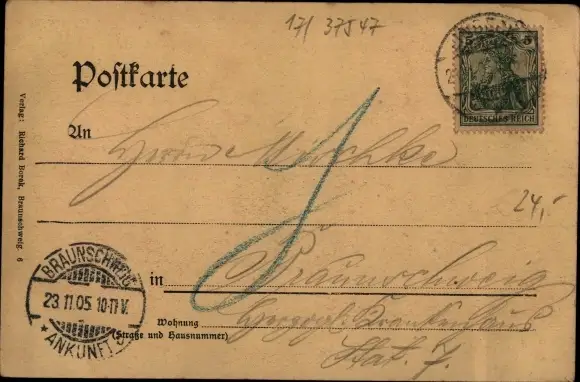 17/ 37547
Postkarte
5 5
DEUTSCHES REICH
An
Herrn
24,-
Verlag: Richard Borek, Braunschweig. 6
BRAUNSCHWEIG
23.11.05. 10-11 V.
* ANKUNFT
in Braunschweig
Wohnung Herzogl. Krankenhaus
(Straße und Hausnummer)
Stat. 7.